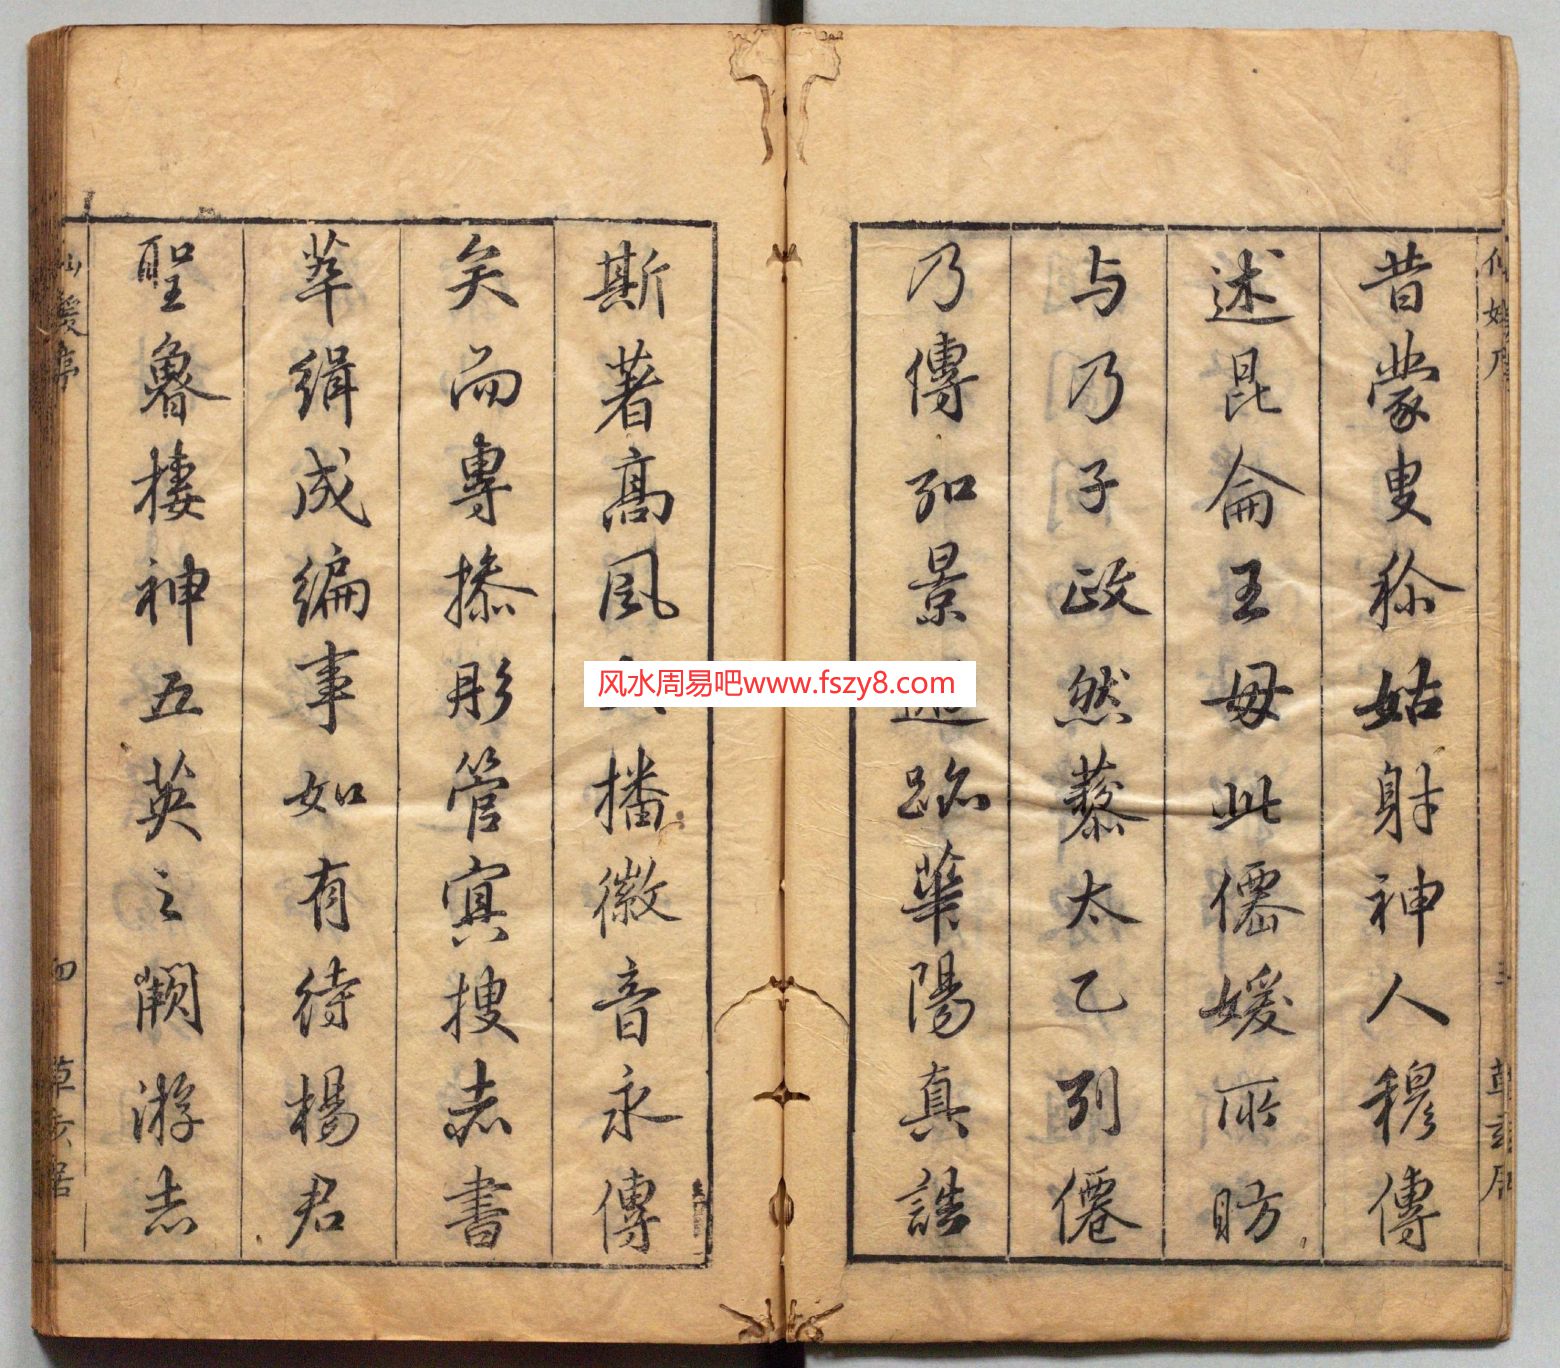 昔蒙叟稱姑射神人穆傳
述昆侖王毋此僊媛所昉
与乃子政然藜太乙列僊
乃傳弘景迹華陽真誥
斯著高風播徽音永傳
矣而專摻彤管寘搜志書
萃緝成編事如有待楊君
聖魯棲神五英之闕游志
風水周易吧www.fszy8.com